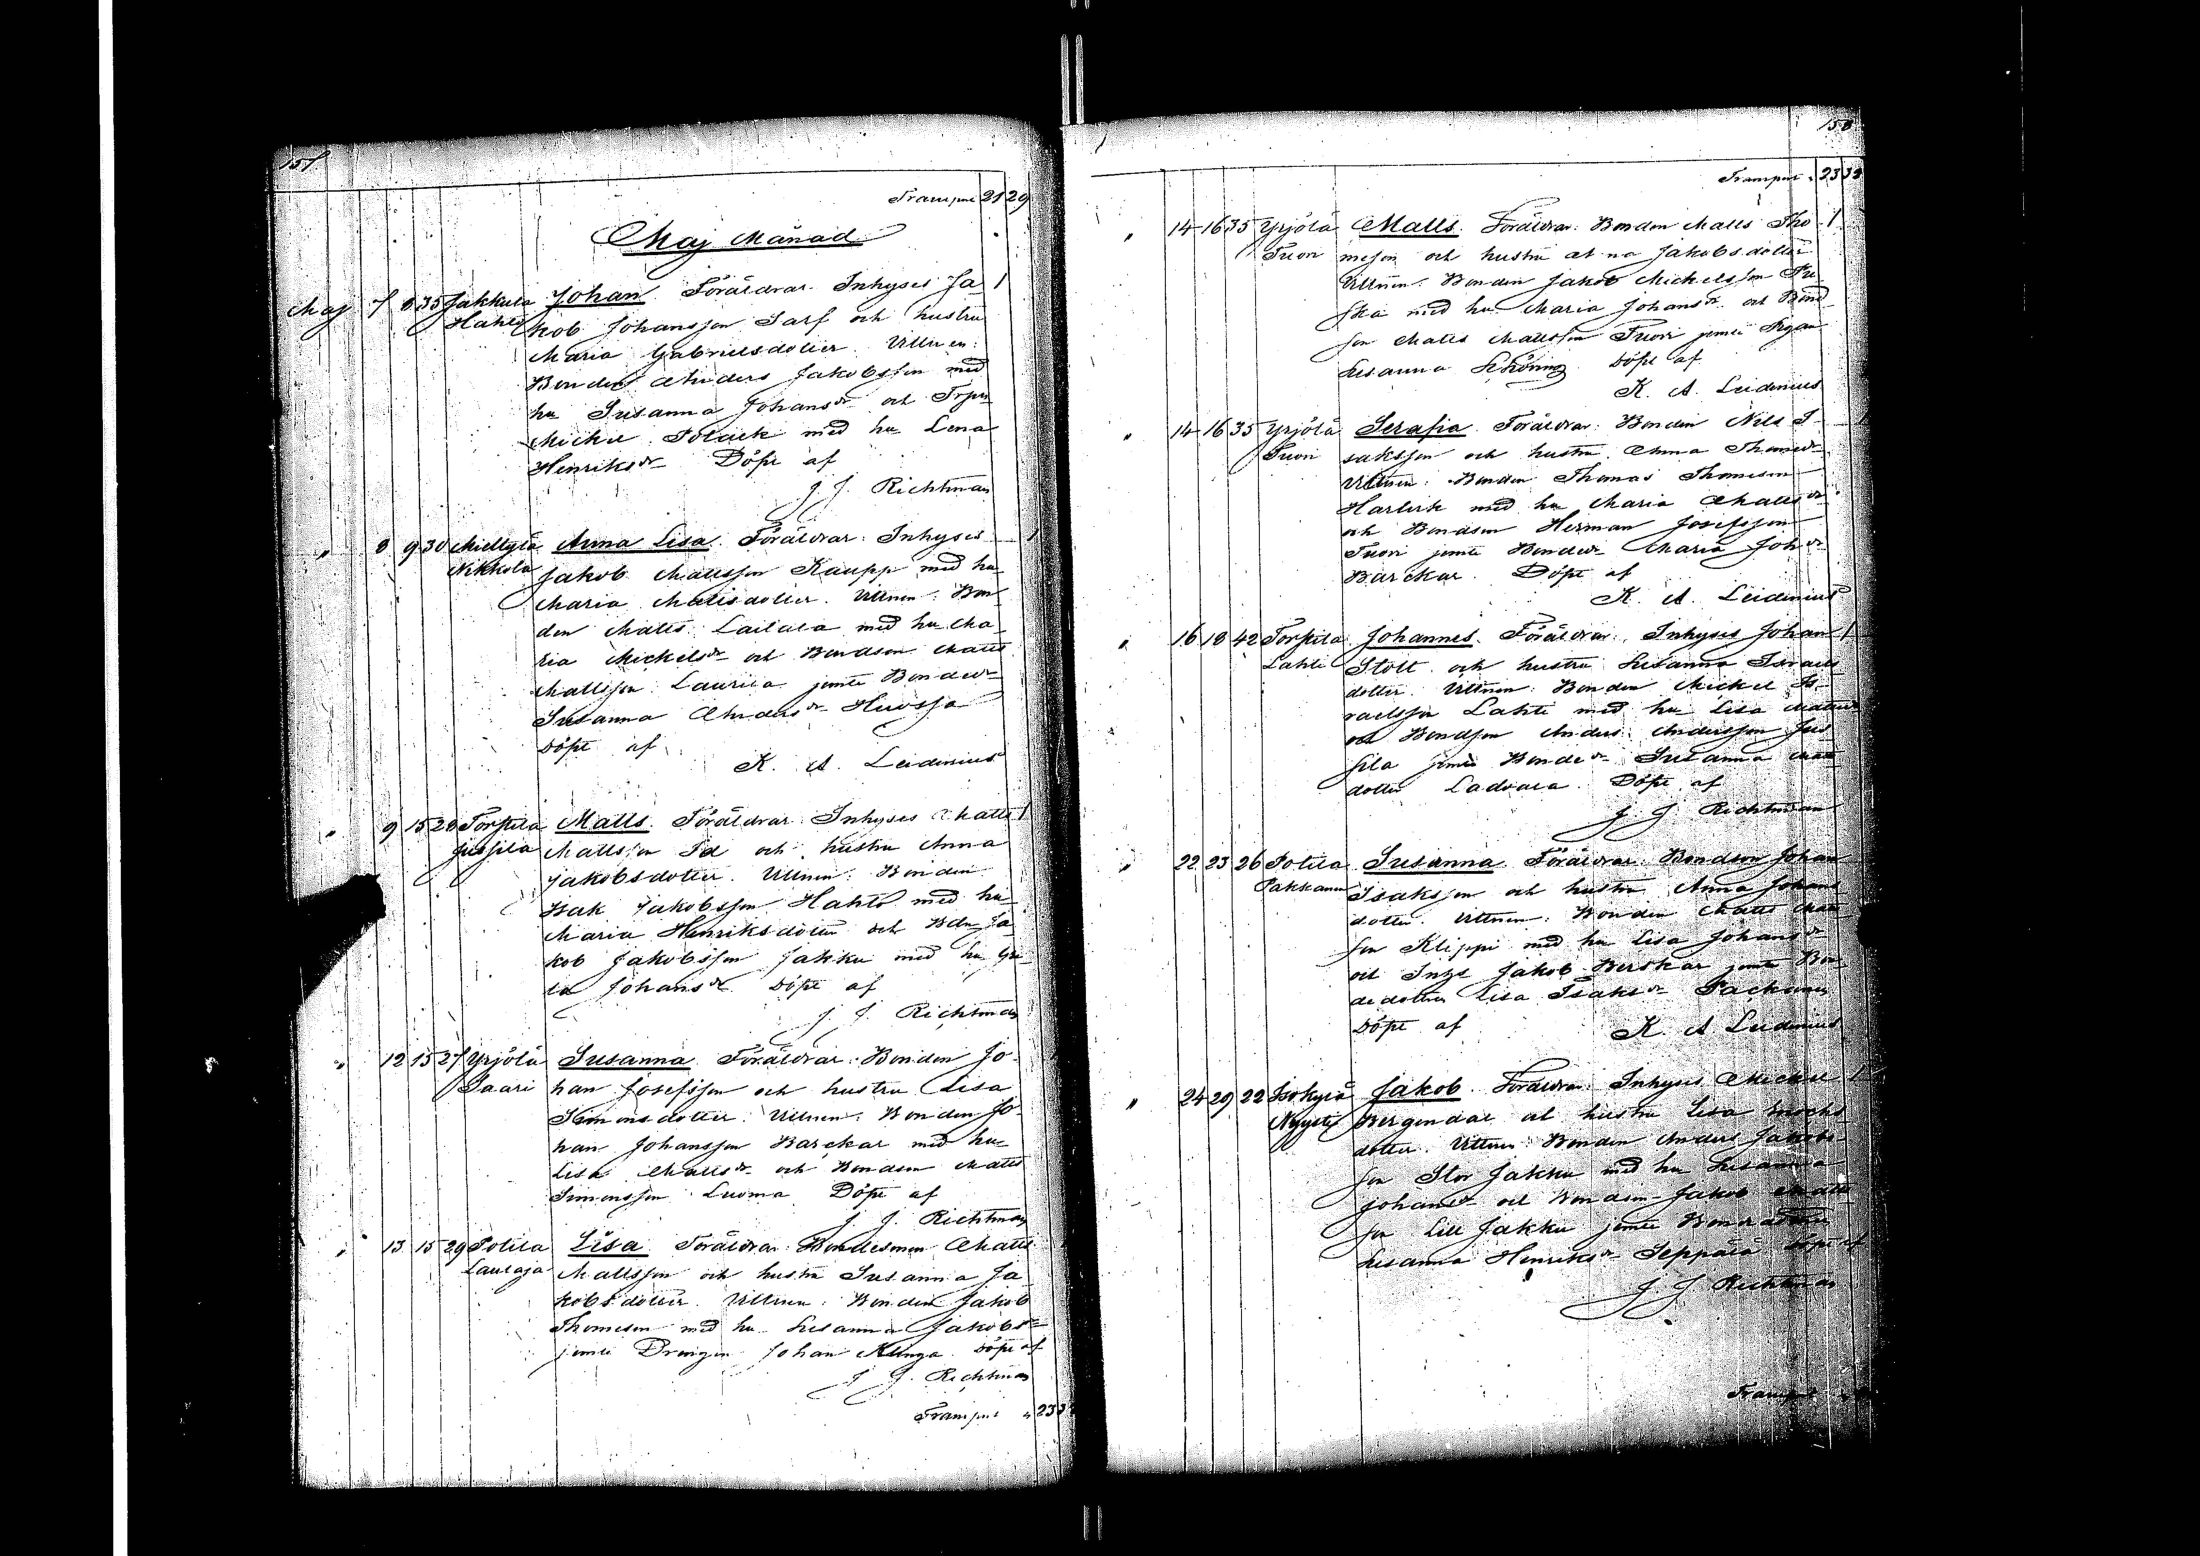 157
Transport 21 29
Maj Månad
Maj 7 8 35 Jakkula Johan. Föräldrar: Inhyses Ja 1
Hahto kob Johansson Sarf och hustru
Maria Gabrielsdotter. Vittnen:
Bonden Anders Jakobsson med
hu Susanna Johansdr och Torpn
Mickel Polack med hu Lena
Henriksdr Döpt af
J. J. Richtman
" 8 9 30 Miettylä Anna Lisa. Föräldrar: Inhyses 1
Nikkola Jakob Mattsson Kaupp med hu
Maria Mattsdotter. Vittnen: Bon
den Matts Lailala med hu Ma
ria Mickelsdr och Bondson Matts
Mattsson Laurila jemte Bondedr
Susanna Andersdr Hiirosja
Döpt af
K. A. Leidenius
" 9 15 28 Torpila Matts. Föräldrar: Inhyses Matts 1
Jussila Mattsson och hustru Anna
Jakobsdotter. Vittnen: Bonden
Isak Jakobsson Hahto med hu
Maria Henriksdotter och Bdn Ja
kob Jakobsson Jakku med hu Gre
ta Johansdr. Döpt af
J. J. Richtman
" 12 15 27 Yrjölä Susanna. Föräldrar: Bonden Jo
Saari han Josefsson och hustru Lisa
Simonsdotter. Vittnen: Bonden Jo
han Johansson Barckar med hu
Lisa Mattsdr och Bondson Matts
Simonsson Luoma Döpt af
J. J. Richtman
" 13 15 29 Potila Lisa Föräldrar: Bondesonen Matts
Lautaja Mattsson och hustru Susanna Ja
kobsdotter. Vittnen: Bonden Jakob
Thomeson med hu Susanna Jakobsdr
jemte Drengen Johan Klinga. Döpt af
J. J. Richtman
Transport 23
158
Transport 23 33
" 14 16 35 Yrjölä Matts. Föräldrar: Bonden Matts Tho 1
Tuori meson och hustru Anna Jakobsdotter
Vittnen: Bonden Jakob Mickelsson
med hu Maria Johansdr och Bond
son Matts Mattsson Tuori jemte
Susanna Schöring Döpt af
K. A. Leidenius
" 14 16 35 Yrjölä Serafia. Föräldrar: Bonden Nils I 1
Tuori saksson och hustru Anna Thomedr
Vittnen: Bonden Thomas Thomeson
Harlerk med hu Maria Mattsdr
och Bondson Herman Josefsson
Tuori jemte Bondedr Maria Johdr
Barckar. Döpt af
K. A. Leidenius
" 16 18 42 Torpila Johannes. Föräldrar: Inhyses Johan 1
Lahti Stolt och hustru Susanna Israels
dotter. Vittnen: Bonden Mickel Is
raelsson Lahti med hu Lisa
och Bondson Anders Andersson Jus
sila jemte Bondedr Susanna
dotter Ladvala. Döpt af
J. J. Richtman
" 22 23 26 Potila Susanna Föräldrar: Bondson Johan
Pakkanen Isaksson och hustru Anna Johans
dotter. Vittnen: Bonden Matts
son Klippi med hu Lisa Johansdr
och Inhs Jakob Berskar jemte Bon
dedotter Lisa Isaksdr Packanen
Döpt af K. A. Leidenius
" 24 29 22 Isokyrö Jakob. Föräldrar: Inhyses Mickel 1
Nyysti Bergendal och hustru Lisa
dotter. Vittnen: Bonden Anders Jakobs
son Stor Jakku med hu Susanna
Johansdr och Bondson Jakob Matts
son Lill Jakku jemte Bondedotter
Susanna Henriksdr Seppälä Döpt af
J. J. Richtman
Transport